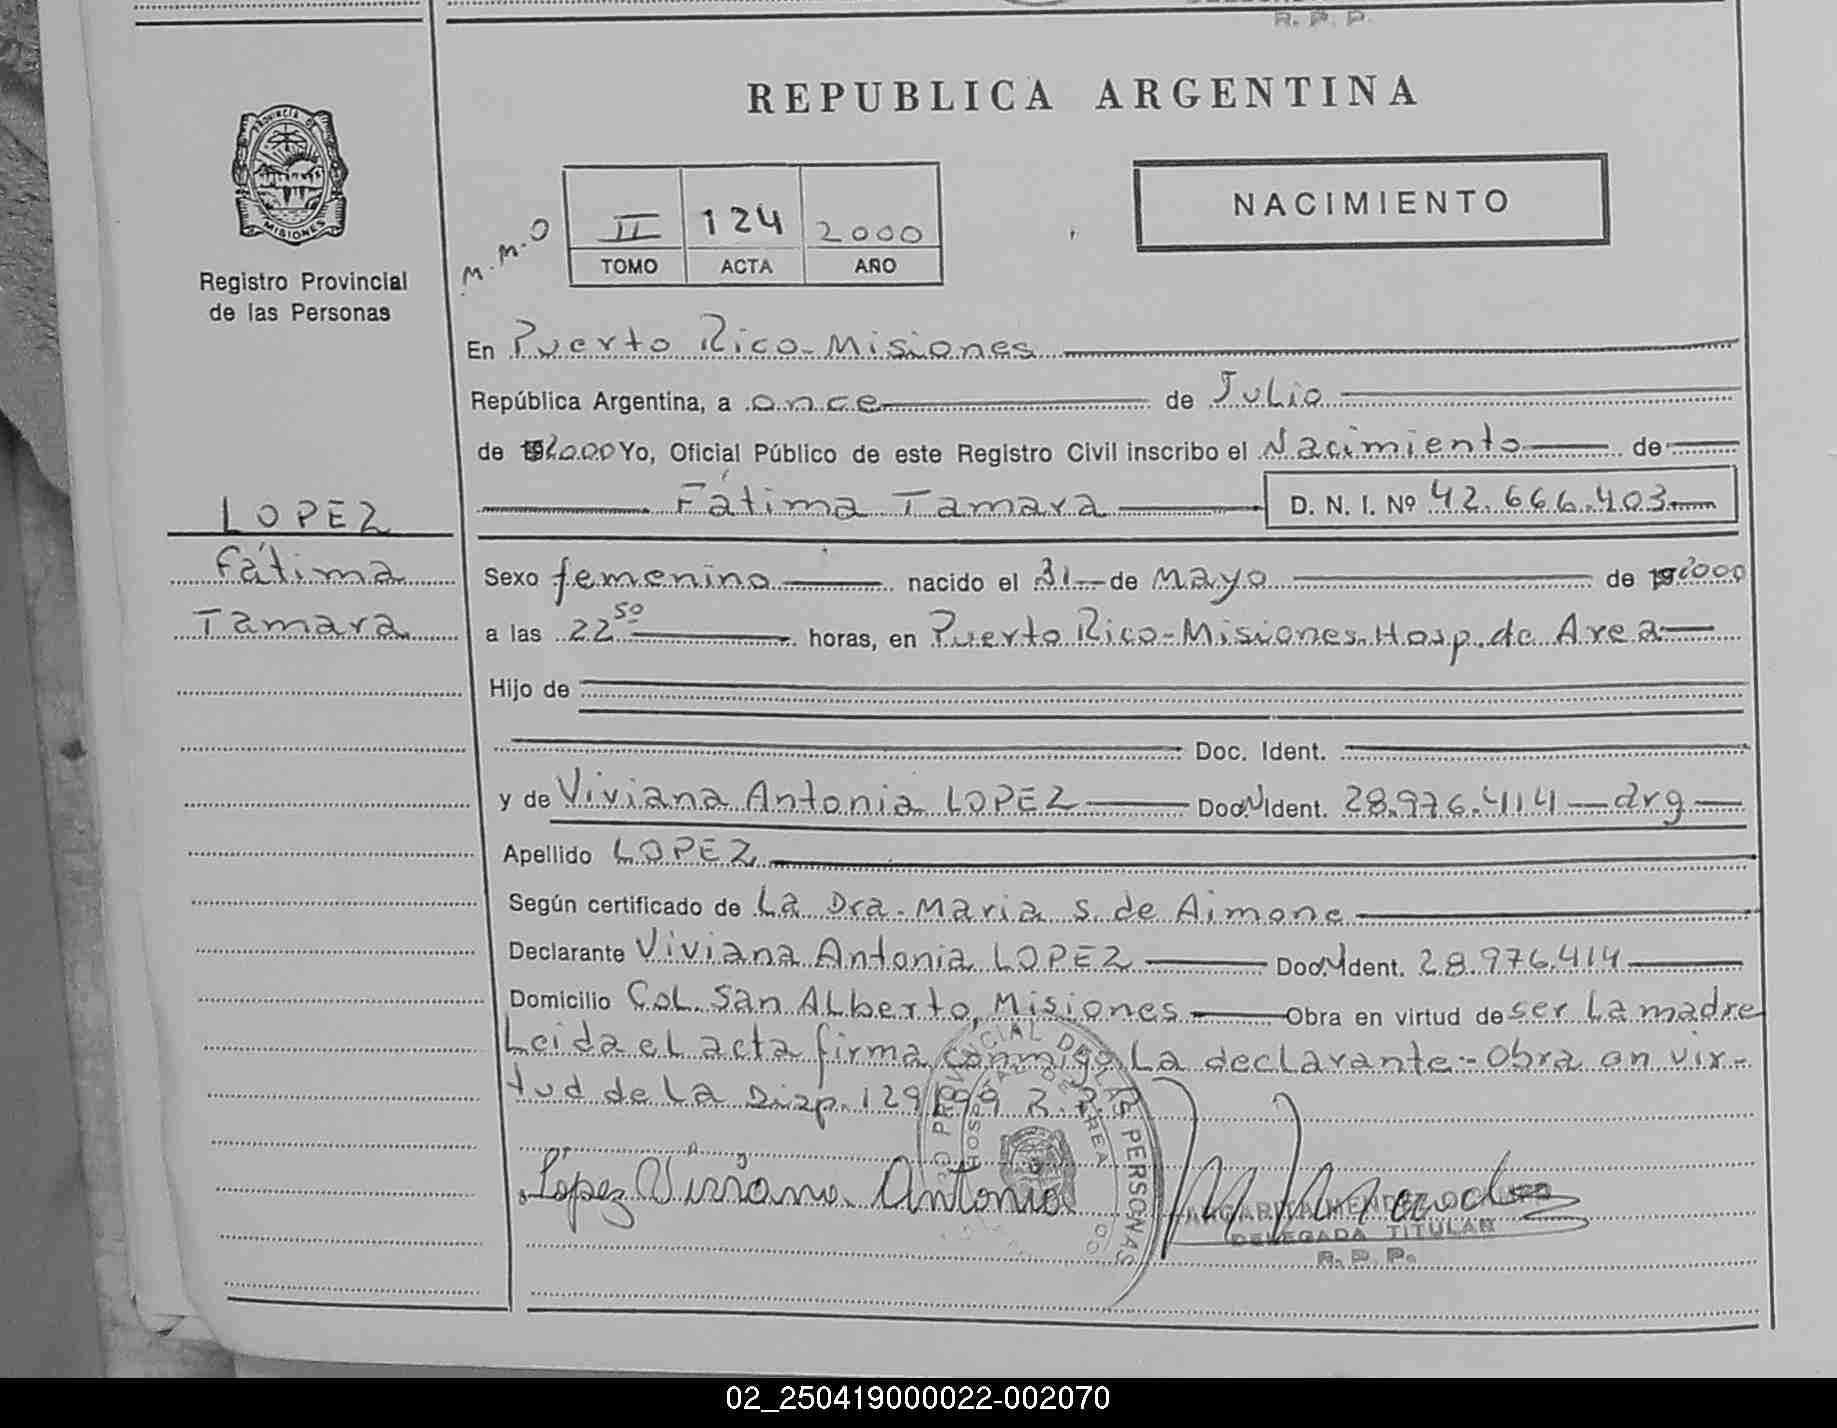 R. P. P.
REPUBLICA ARGENTINA
PROVINCIA DE MISIONES
Registro Provincial
de las Personas
M.M.O
II 124 2000
TOMO ACTA AÑO
NACIMIENTO
En Puerto Rico - Misiones
República Argentina, a once de Julio
de 2000 Yo, Oficial Público de este Registro Civil inscribo el Nacimiento de
Fátima Tamara D. N. I. Nº 42.666.403
LOPEZ
Fátima
Tamara
Sexo femenino nacido el 31 de Mayo de 2000
a las 22 50 horas, en Puerto Rico - Misiones. Hosp. de Area
Hijo de
Doc. Ident.
y de Viviana Antonia LOPEZ Doc. Ident. 28.976.414 - arg
Apellido LOPEZ
Según certificado de La Dra. Maria S. de Aimone
Declarante Viviana Antonia LOPEZ Doc. Ident. 28.976.414
Domicilio Col. San Alberto, Misiones Obra en virtud de ser La madre
Leida el acta firma conmigo La declarante - Obra en vir-
tud de La Disp. 129/99 R.P.P.
PROVINCIAL DE LAS PERSONAS
HOSPITAL DE AREA
López Viviana Antonia
DELEGADA TITULAR
R. P. P.
02_250419000022-002070